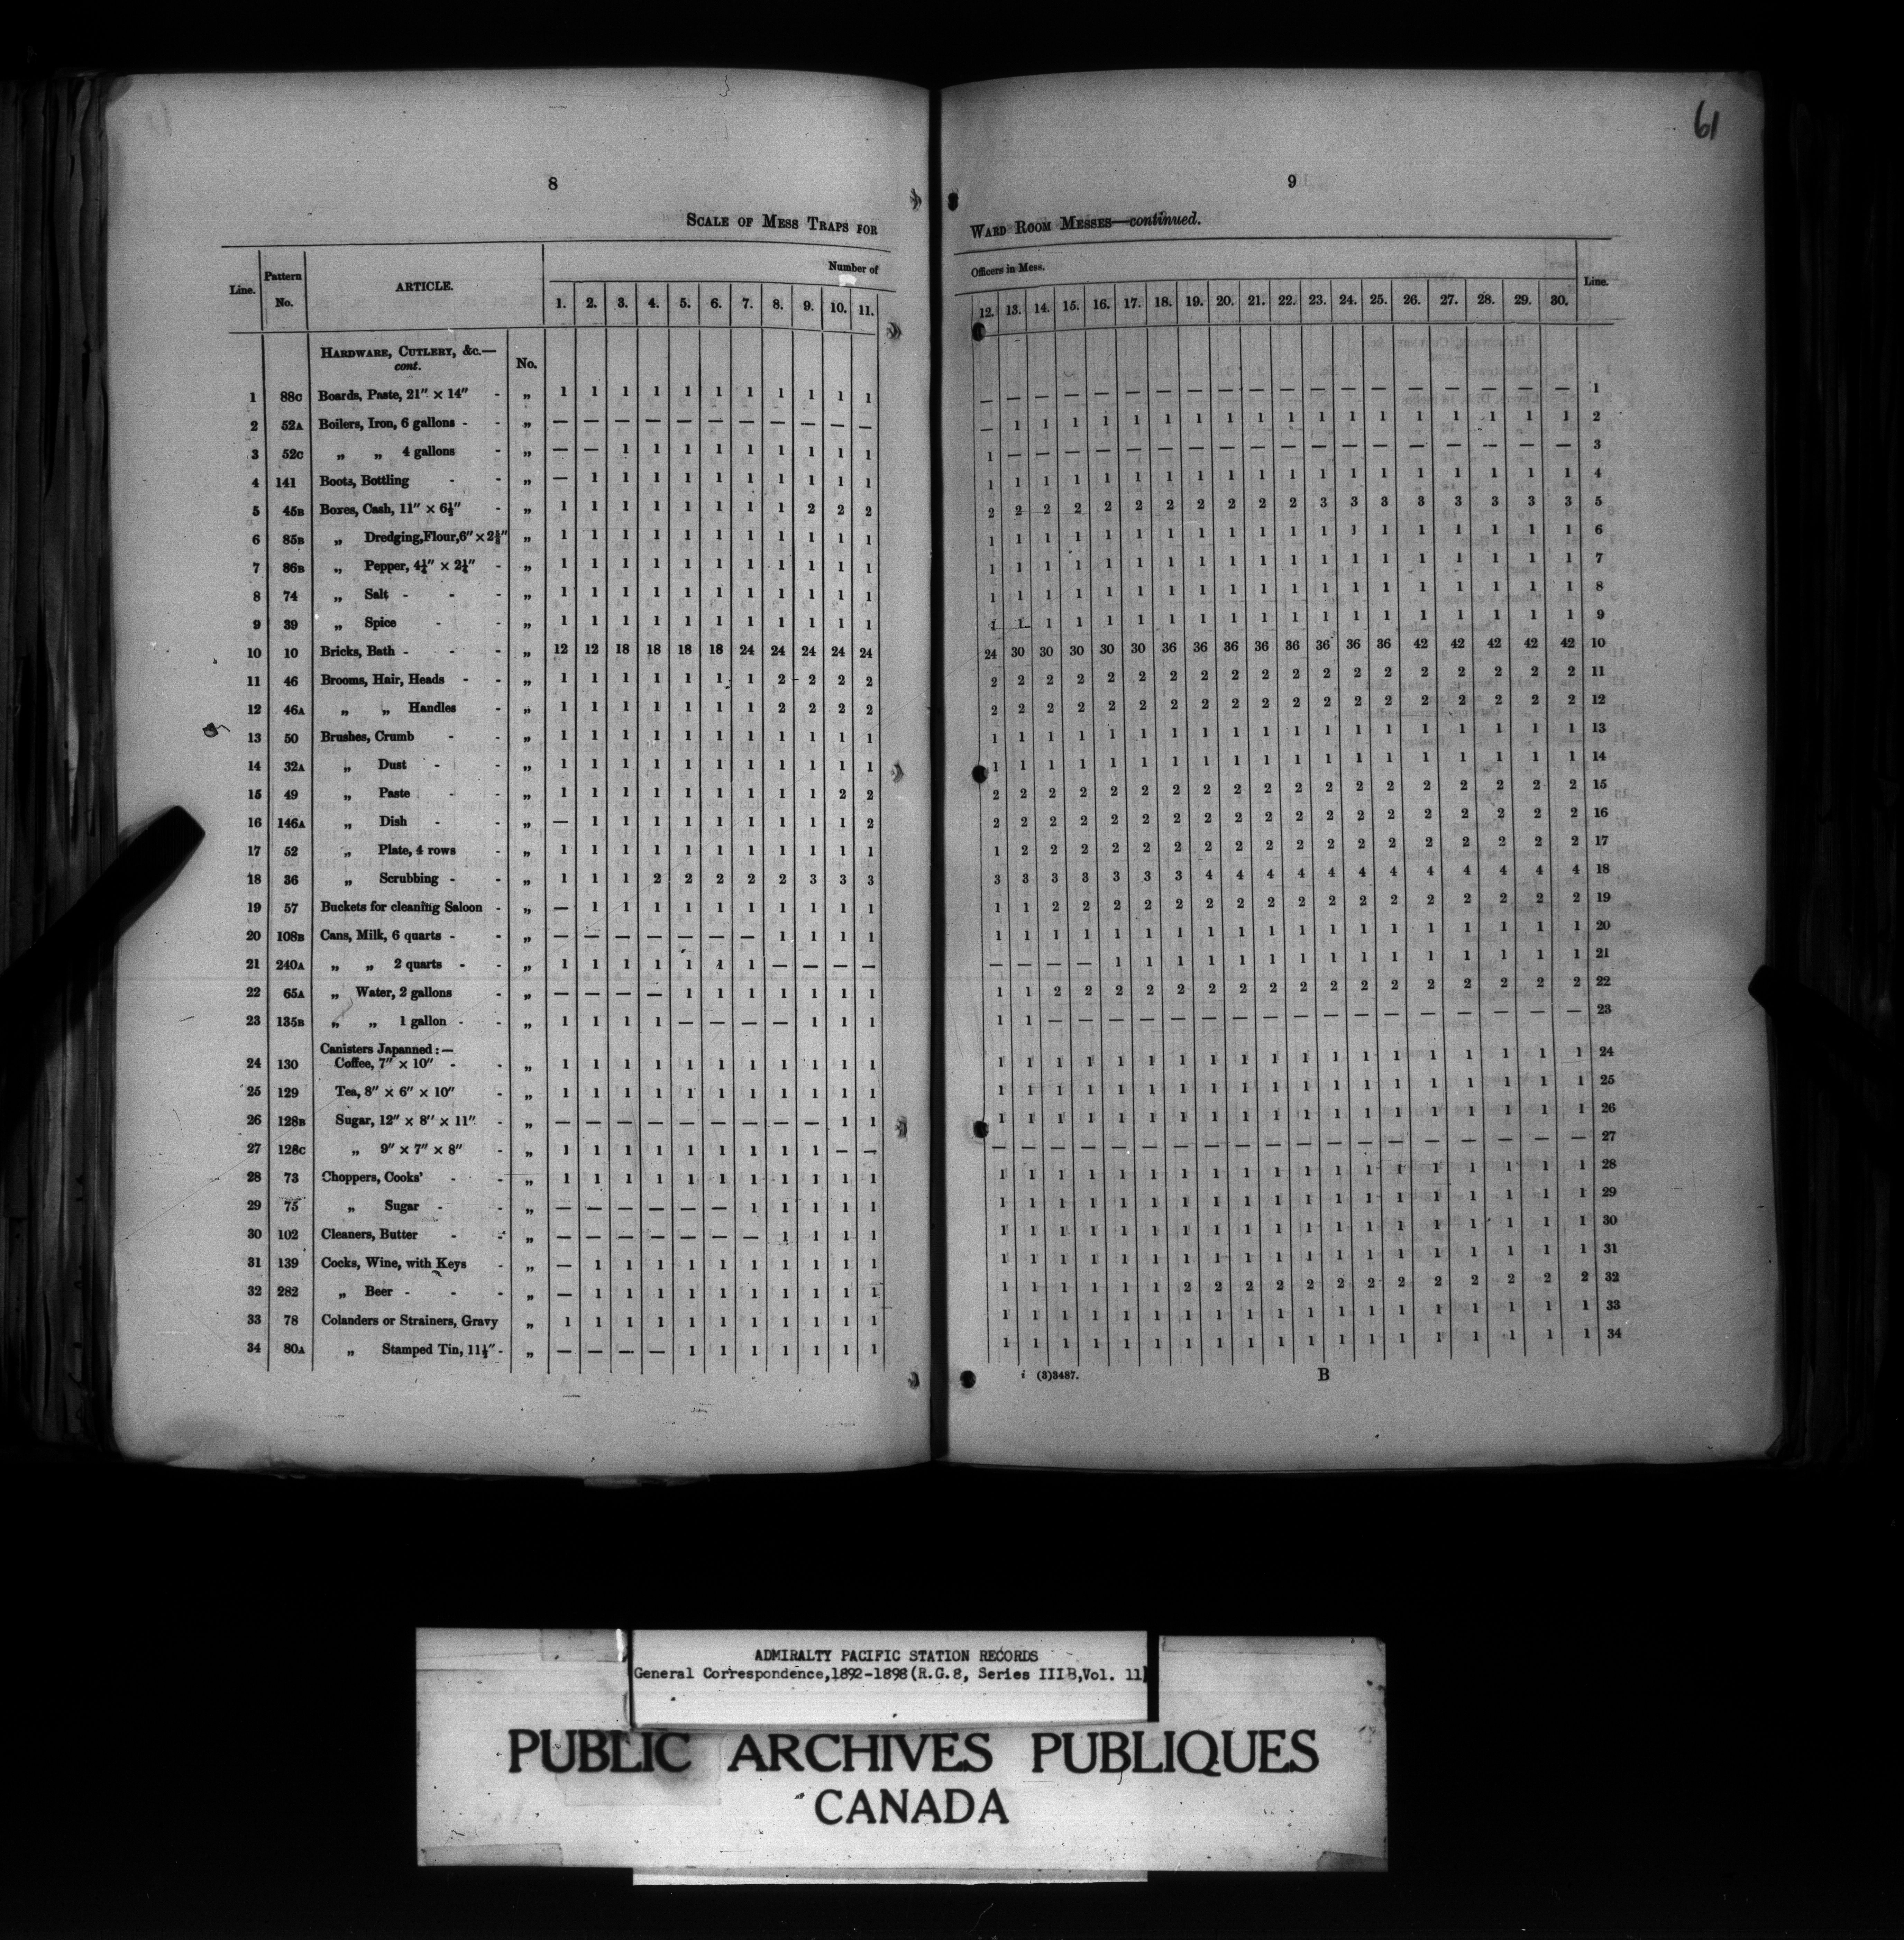 61
8
SCALE OF MESS TRAPS FOR
Line. Pattern No. ARTICLE. Number of
1. 2. 3. 4. 5. 6. 7. 8. 9. 10. 11.
HARDWARE, CUTLERY, &c.—
cont. No.
1 88C Boards, Paste, 21" × 14" - „ 1 1 1 1 1 1 1 1 1 1 1
2 52A Boilers, Iron, 6 gallons - - „ — — — — — — — — — — —
3 52C „ „ 4 gallons - „ — — 1 1 1 1 1 1 1 1 1
4 141 Boots, Bottling - - „ — 1 1 1 1 1 1 1 1 1 1
5 45B Boxes, Cash, 11" × 6½" - „ 1 1 1 1 1 1 1 1 2 2 2
6 85B „ Dredging, Flour, 6" × 2⅝" „ 1 1 1 1 1 1 1 1 1 1 1
7 86B „ Pepper, 4¼" × 2¼" - „ 1 1 1 1 1 1 1 1 1 1 1
8 74 „ Salt - - - „ 1 1 1 1 1 1 1 1 1 1 1
9 39 „ Spice - - „ 1 1 1 1 1 1 1 1 1 1 1
10 10 Bricks, Bath - - - „ 12 12 18 18 18 18 24 24 24 24 24
11 46 Brooms, Hair, Heads - - „ 1 1 1 1 1 1 1 2 2 2 2
12 46A „ „ Handles - „ 1 1 1 1 1 1 1 2 2 2 2
13 50 Brushes, Crumb - - „ 1 1 1 1 1 1 1 1 1 1 1
14 32A „ Dust - - „ 1 1 1 1 1 1 1 1 1 1 1
15 49 „ Paste - - „ 1 1 1 1 1 1 1 1 1 2 2
16 146A „ Dish - - „ — 1 1 1 1 1 1 1 1 1 2
17 52 „ Plate, 4 rows - „ 1 1 1 1 1 1 1 1 1 1 1
18 36 „ Scrubbing - - „ 1 1 1 2 2 2 2 2 3 3 3
19 57 Buckets for cleaning Saloon - „ — 1 1 1 1 1 1 1 1 1 1
20 108B Cans, Milk, 6 quarts - - „ — — — — — — — 1 1 1 1
21 240A „ „ 2 quarts - - „ 1 1 1 1 1 1 1 — — — —
22 65A „ Water, 2 gallons - „ — — — — 1 1 1 1 1 1 1
23 135B „ „ 1 gallon - - „ 1 1 1 1 — — — — 1 1 1
Canisters Japanned:—
24 130 Coffee, 7" × 10" - - „ 1 1 1 1 1 1 1 1 1 1 1
25 129 Tea, 8" × 6" × 10" - „ 1 1 1 1 1 1 1 1 1 1 1
26 128B Sugar, 12" × 8" × 11" - „ — — — — — — — — — 1 1
27 128C „ 9" × 7" × 8" - „ 1 1 1 1 1 1 1 1 1 — —
28 73 Choppers, Cooks' - - „ 1 1 1 1 1 1 1 1 1 1 1
29 75 „ Sugar - - „ — — — — — — 1 1 1 1 1
30 102 Cleaners, Butter - - „ — — — — — — — 1 1 1 1
31 139 Cocks, Wine, with Keys - „ — 1 1 1 1 1 1 1 1 1 1
32 282 „ Beer - - - „ — 1 1 1 1 1 1 1 1 1 1
33 78 Colanders or Strainers, Gravy „ 1 1 1 1 1 1 1 1 1 1 1
34 80A „ Stamped Tin, 11½" - „ — — — — 1 1 1 1 1 1 1
9
WARD ROOM MESSES—continued.
Officers in Mess. Line.
12. 13. 14. 15. 16. 17. 18. 19. 20. 21. 22. 23. 24. 25. 26. 27. 28. 29. 30.
— — — — — — — — — — — — — — — — — — — 1
— 1 1 1 1 1 1 1 1 1 1 1 1 1 1 1 1 1 1 2
1 — — — — — — — — — — — — — — — — — — 3
1 1 1 1 1 1 1 1 1 1 1 1 1 1 1 1 1 1 1 4
2 2 2 2 2 2 2 2 2 2 2 3 3 3 3 3 3 3 3 5
1 1 1 1 1 1 1 1 1 1 1 1 1 1 1 1 1 1 1 6
1 1 1 1 1 1 1 1 1 1 1 1 1 1 1 1 1 1 1 7
1 1 1 1 1 1 1 1 1 1 1 1 1 1 1 1 1 1 1 8
1 1 1 1 1 1 1 1 1 1 1 1 1 1 1 1 1 1 1 9
24 30 30 30 30 30 36 36 36 36 36 36 36 36 42 42 42 42 42 10
2 2 2 2 2 2 2 2 2 2 2 2 2 2 2 2 2 2 2 11
2 2 2 2 2 2 2 2 2 2 2 2 2 2 2 2 2 2 2 12
1 1 1 1 1 1 1 1 1 1 1 1 1 1 1 1 1 1 1 13
1 1 1 1 1 1 1 1 1 1 1 1 1 1 1 1 1 1 1 14
2 2 2 2 2 2 2 2 2 2 2 2 2 2 2 2 2 2 2 15
2 2 2 2 2 2 2 2 2 2 2 2 2 2 2 2 2 2 2 16
1 2 2 2 2 2 2 2 2 2 2 2 2 2 2 2 2 2 2 17
3 3 3 3 3 3 3 4 4 4 4 4 4 4 4 4 4 4 4 18
1 1 2 2 2 2 2 2 2 2 2 2 2 2 2 2 2 2 2 19
1 1 1 1 1 1 1 1 1 1 1 1 1 1 1 1 1 1 1 20
— — — — 1 1 1 1 1 1 1 1 1 1 1 1 1 1 1 21
1 1 2 2 2 2 2 2 2 2 2 2 2 2 2 2 2 2 2 22
1 1 — — — — — — — — — — — — — — — — — 23
1 1 1 1 1 1 1 1 1 1 1 1 1 1 1 1 1 1 1 24
1 1 1 1 1 1 1 1 1 1 1 1 1 1 1 1 1 1 1 25
1 1 1 1 1 1 1 1 1 1 1 1 1 1 1 1 1 1 1 26
— — — — — — — — — — — — — — — — — — — 27
1 1 1 1 1 1 1 1 1 1 1 1 1 1 1 1 1 1 1 28
1 1 1 1 1 1 1 1 1 1 1 1 1 1 1 1 1 1 1 29
1 1 1 1 1 1 1 1 1 1 1 1 1 1 1 1 1 1 1 30
1 1 1 1 1 1 1 1 1 1 1 1 1 1 1 1 1 1 1 31
1 1 1 1 1 1 2 2 2 2 2 2 2 2 2 2 2 2 2 32
1 1 1 1 1 1 1 1 1 1 1 1 1 1 1 1 1 1 1 33
1 1 1 1 1 1 1 1 1 1 1 1 1 1 1 1 1 1 1 34
i (3)3487. B
ADMIRALTY PACIFIC STATION RECORDS
General Correspondence,1892-1898(R.G.8, Series IIIB,Vol. 11)
PUBLIC ARCHIVES PUBLIQUES
CANADA